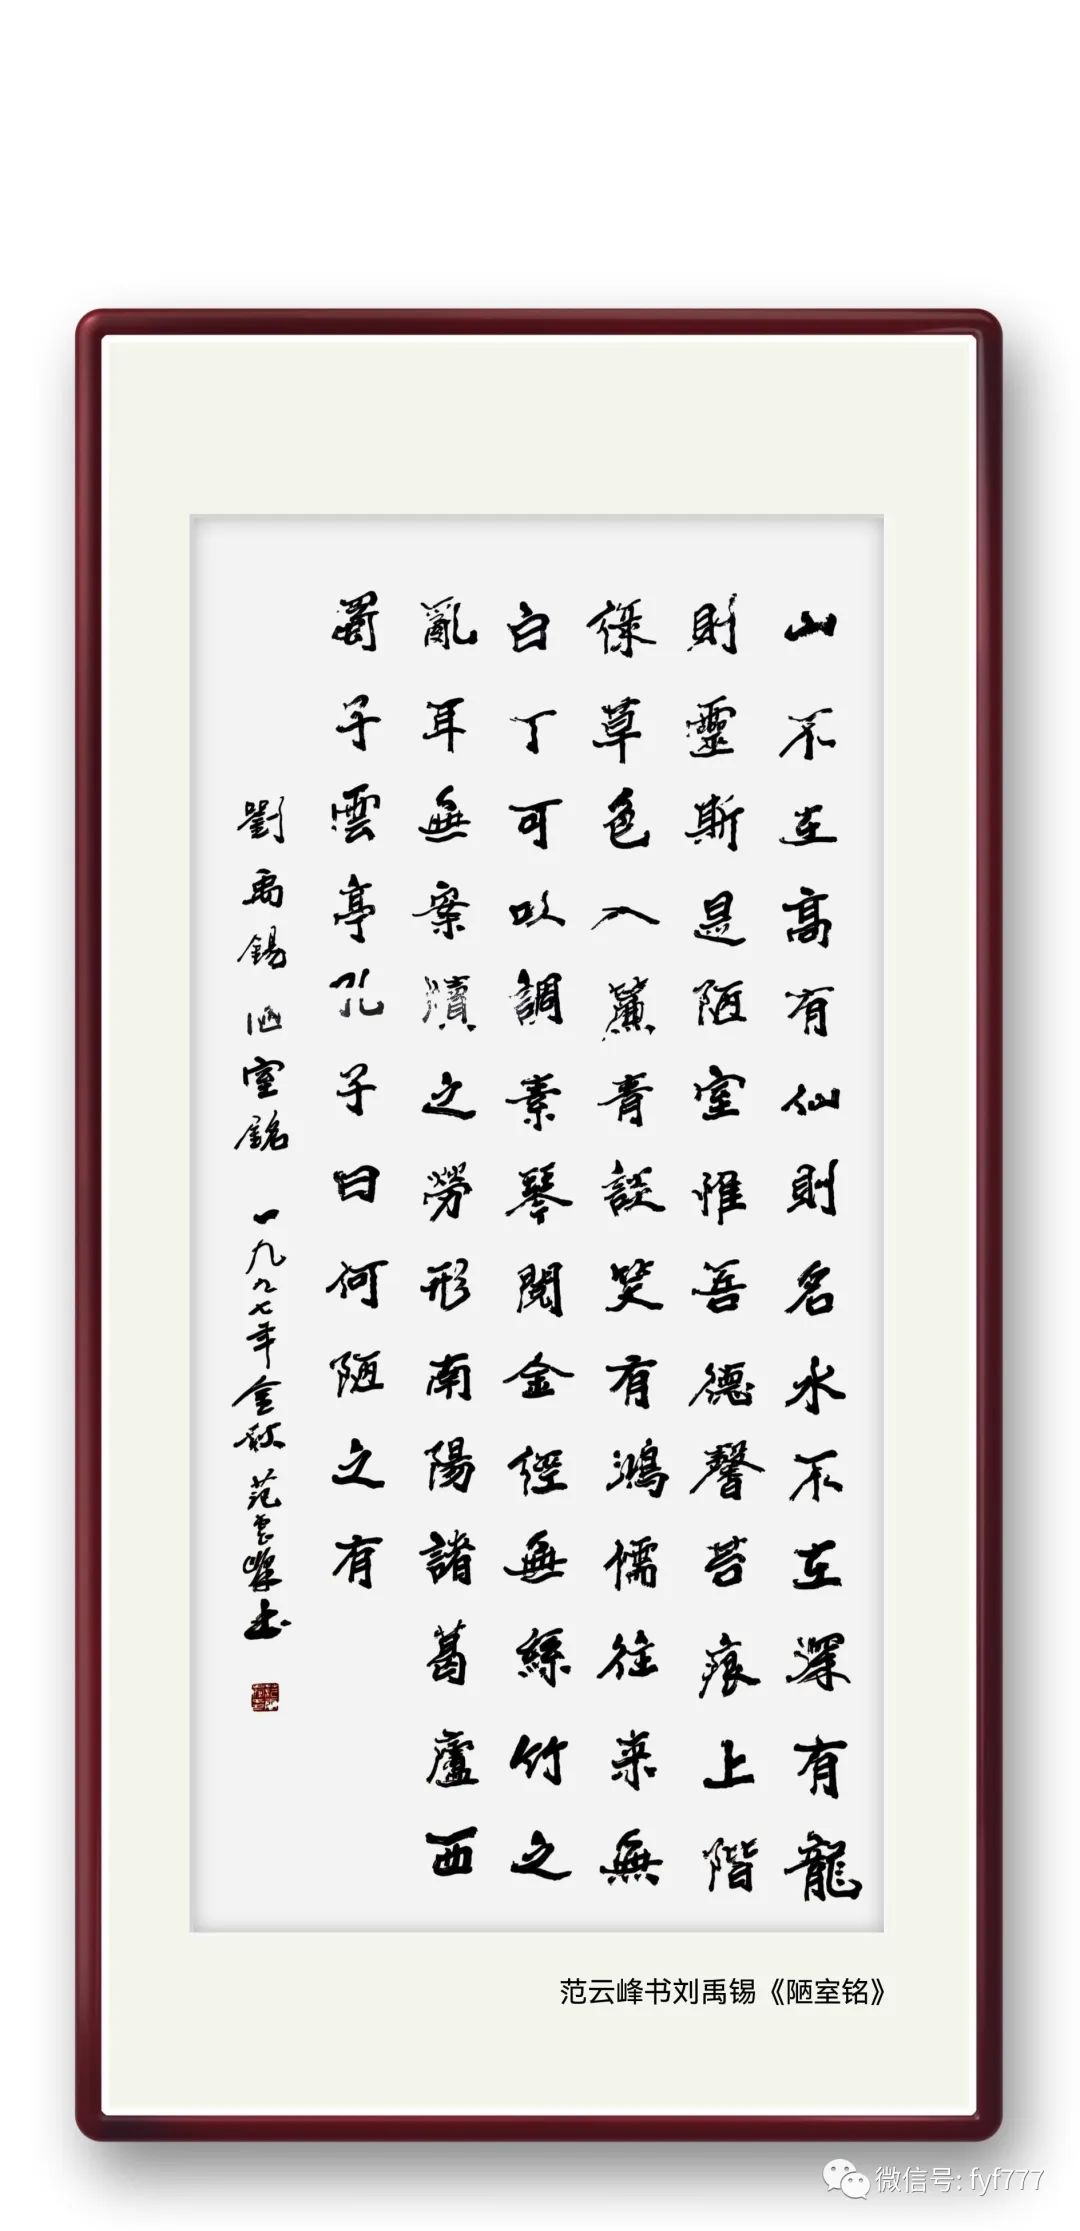 山不在高有仙則名水不在深有龍
則靈斯是陋室惟吾德馨苔痕上階
緑草色入簾青談笑有鴻儒往来無
白丁可以調素琴閱金經無絲竹之
亂耳無案牘之勞形南陽諸葛廬西
蜀子雲亭孔子曰何陋之有
劉禹錫陋室銘 一九九七年金秋 范雲峰书
范云峰书刘禹锡《陋室铭》
微信号: fyf777